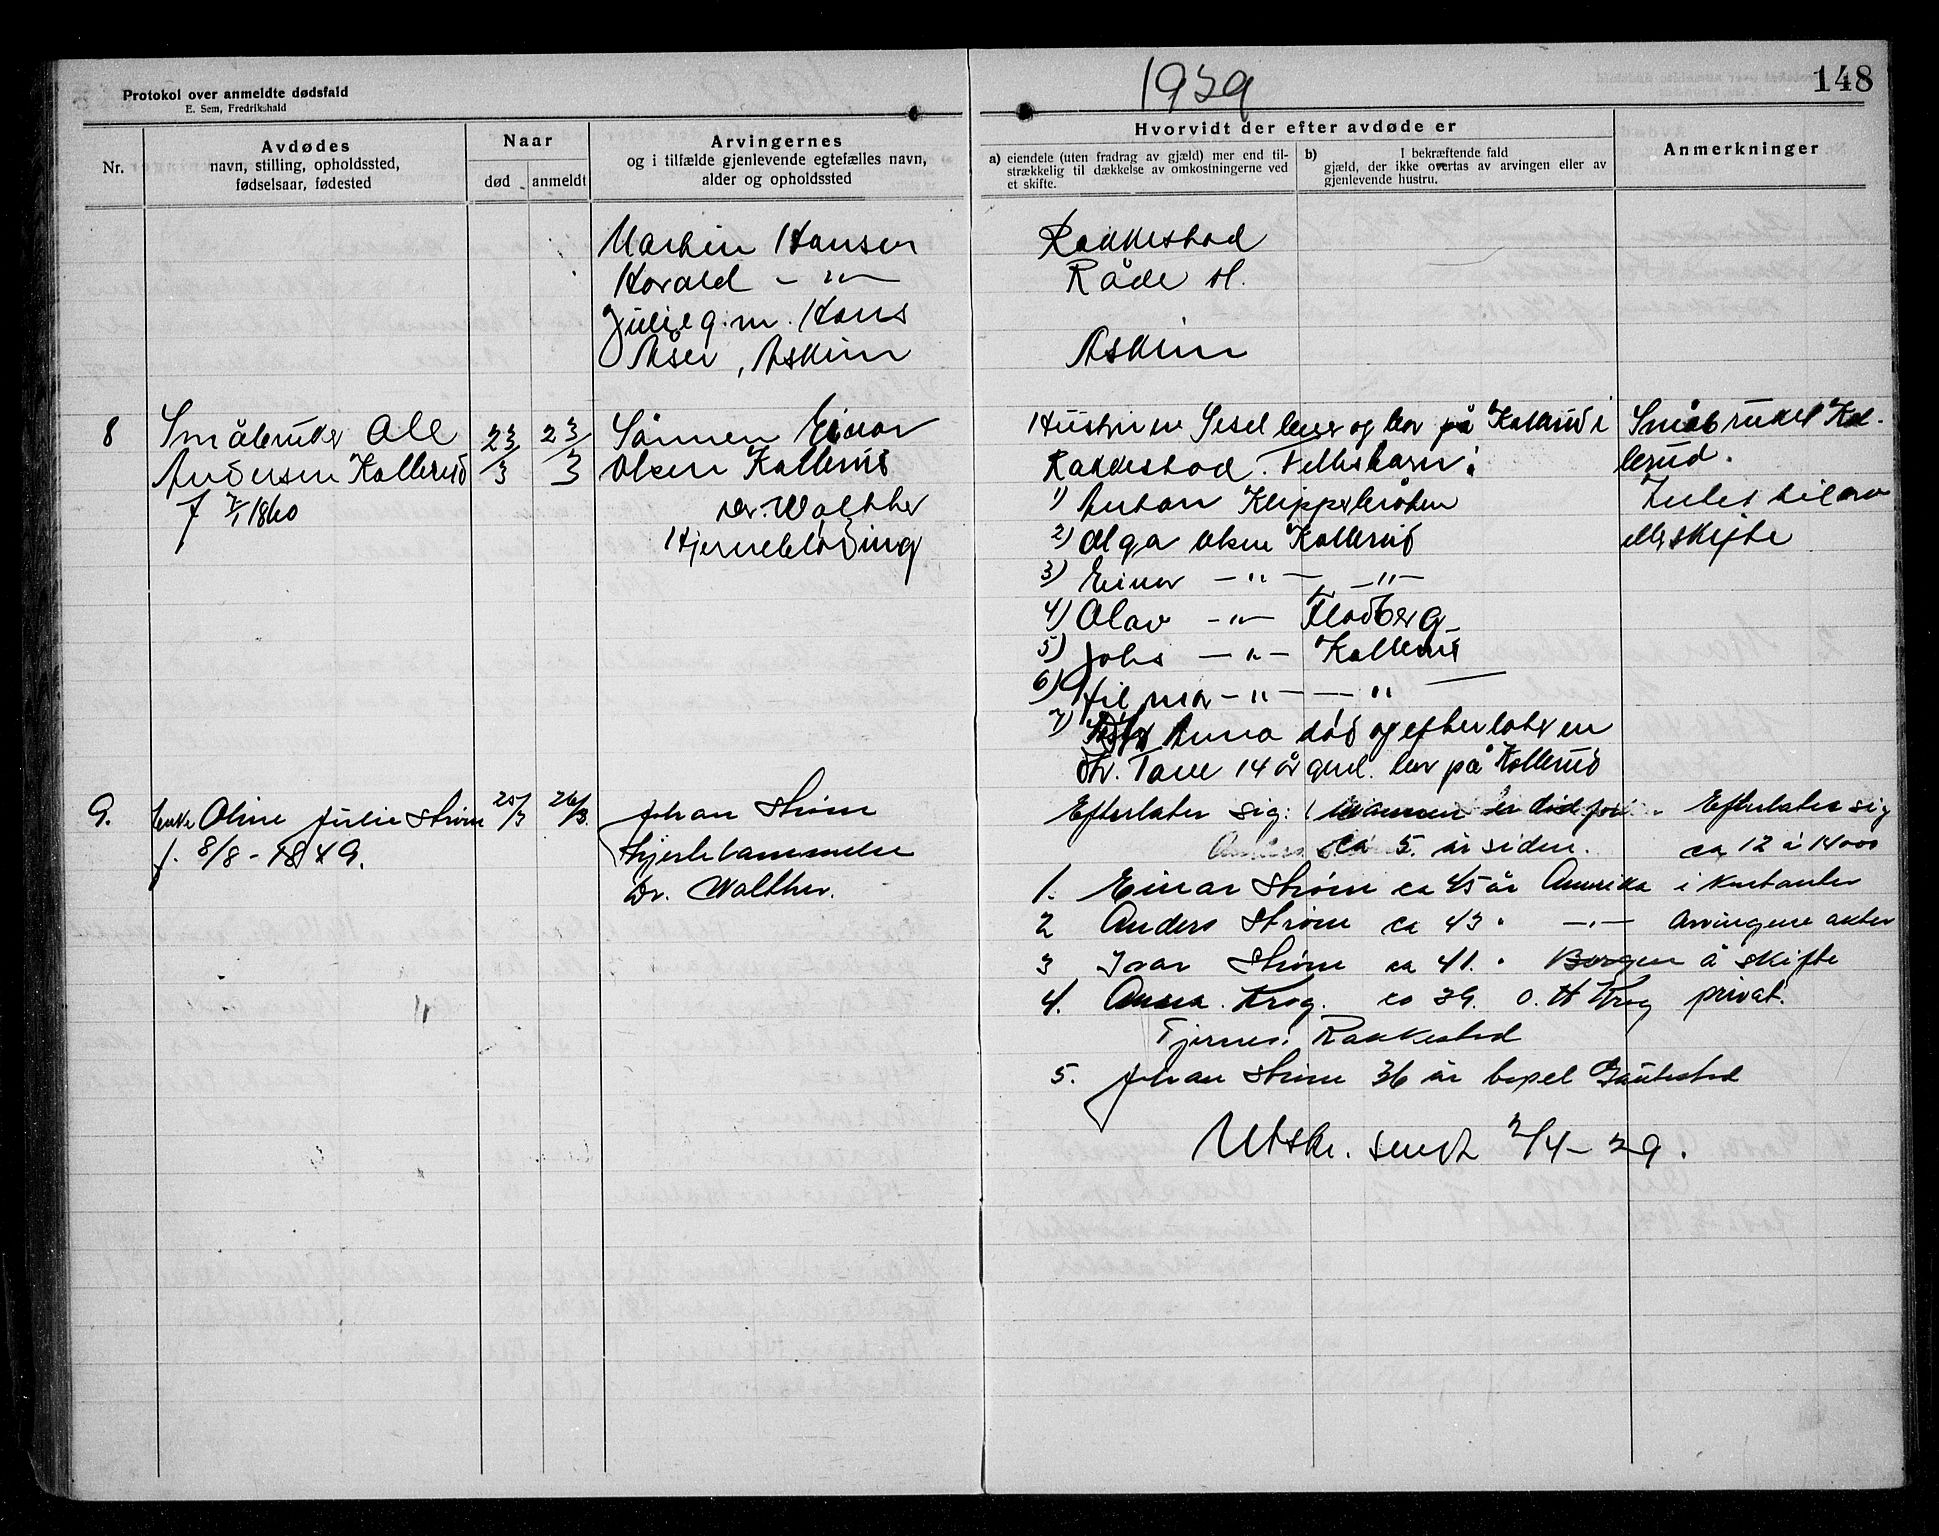 Protokol over anmeldte dødsfald
E. Sem, Fredrikshald
1939
148
Nr.
Avdødes
navn, stilling, opholdssted,
fødselsaar, fødested
Naar
død
anmeldt
Arvingernes
og i tilfælde gjenlevende egtefælles navn,
alder og opholdssted
Hvorvidt der efter avdøde er
a) eiendele (uten fradrag av gjæld) mer end til-
strækkelig til dækkelse av omkostningerne ved
et skifte.
b) I bekræftende fald
gjæld, der ikke overtas av arvingen eller av
gjenlevende hustru.
Anmerkninger
Martin Hansen Rakkestad
Harald - " - Råde st.
Julie g. m. Hans
Åser, Askim Askim
8 Småbruker Ole
Andersen Kallerud
f 7/1 1860
23/3 23/3
Sønnen Einar
Olsen Kallerud
Dr. Walther
Hjerneblødning
Hustruen lever og bor på Kallerud i
Rakkestad. Fellesbarn:
1) Anton Klipperåsen
2) Olga Olsen Kallerud
3) Einar - " - - " -
4) Olav - " - Flodberg
5) Johs - " - Kallerud
6) Hilmar - " - - "
7) Anna død og efterlater en
dtr. Tove 14 år gml. bor på Kallerud
Småbruket Kal-
lerud.
Intet til arv
eller skifte
9. Enke Oline Julie Strøm
f. 8/8 - 1849.
25/3 26/3.
Johan Strøm
Hjertelammelse
Dr. Walther.
Efterlater sig: ( mannen er død for
ca 5. år siden.
1. Einar Strøm ca 45 år Amerika
2 Anders Strøm ca 43 " - " -
3 Ivar Strøm ca 41. " Bergen
4. Anna Krog. ca 39. O. H Krog
Tjernes. Rakkestad
5. Johan Strøm 36 år bopel Gautestad
Utskr. sendt 2/4 - 29.
Efterlater sig
ca 12 à 14000
i kontanter
Arvingene akter
å skifte
privat.